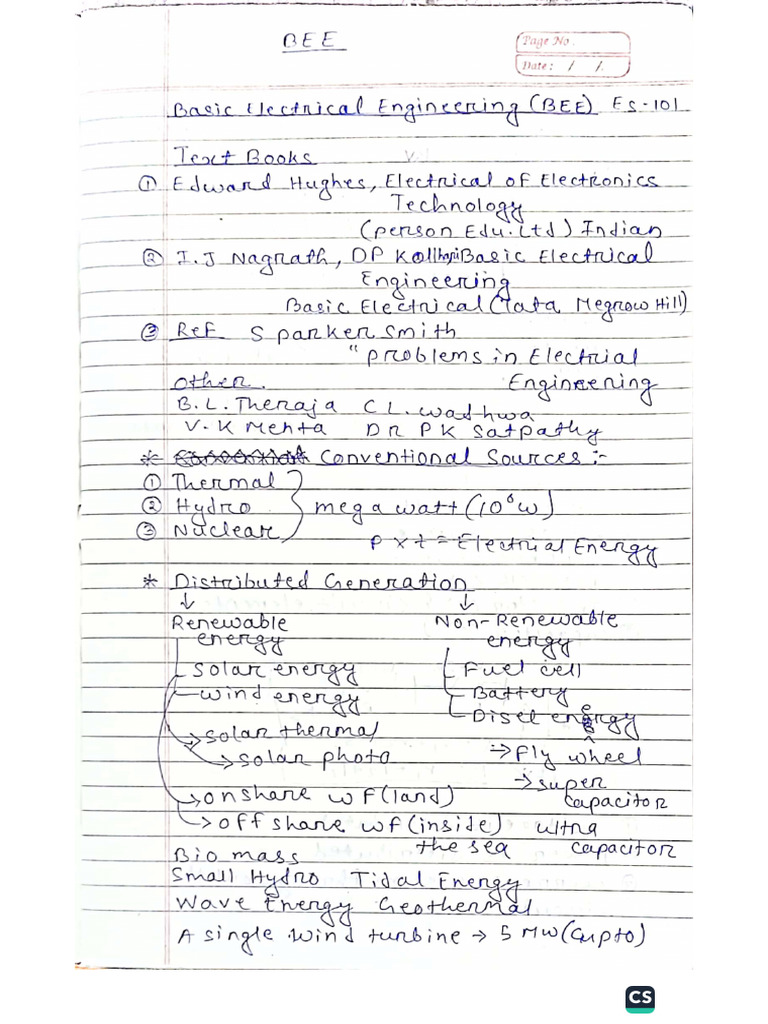 BEE
Page No.
Date: / /.
Basic Electrical Engineering (BEE) Es-101
Text Books
① Edward Hughes, Electrical of Electronics
Technology
(person Edu. Ltd) Indian
② I.J Nagrath, DP Basic Electrical
Engineering
Basic Electrical (Tata Megrow Hill)
③ Ref S parker smith
" problems in Electrial
other. Engineering
B.L. Theraja C L. wadhwa
V.K Mehta DR PK Satpathy
* Conventional Sources :-
① Thermal
② Hydro mega watt (10⁶w)
③ Nuclear
P x t = Electrial Energy
* Distributed Generation
↓ ↓
Renewable Non-Renewable
energy energy
Solar energy Fuel cell
wind energy Battery
Disel energy
→ solar thermal → fly wheel
→ solar photo → super
→ onshare wf (land) capacitor
→ off share wf (inside) ultra
the sea capacitor
Bio mass
Small Hydro Tidal Energy
Wave Energy Geothermal
A single wind turbine → 5 MW (upto)
CS